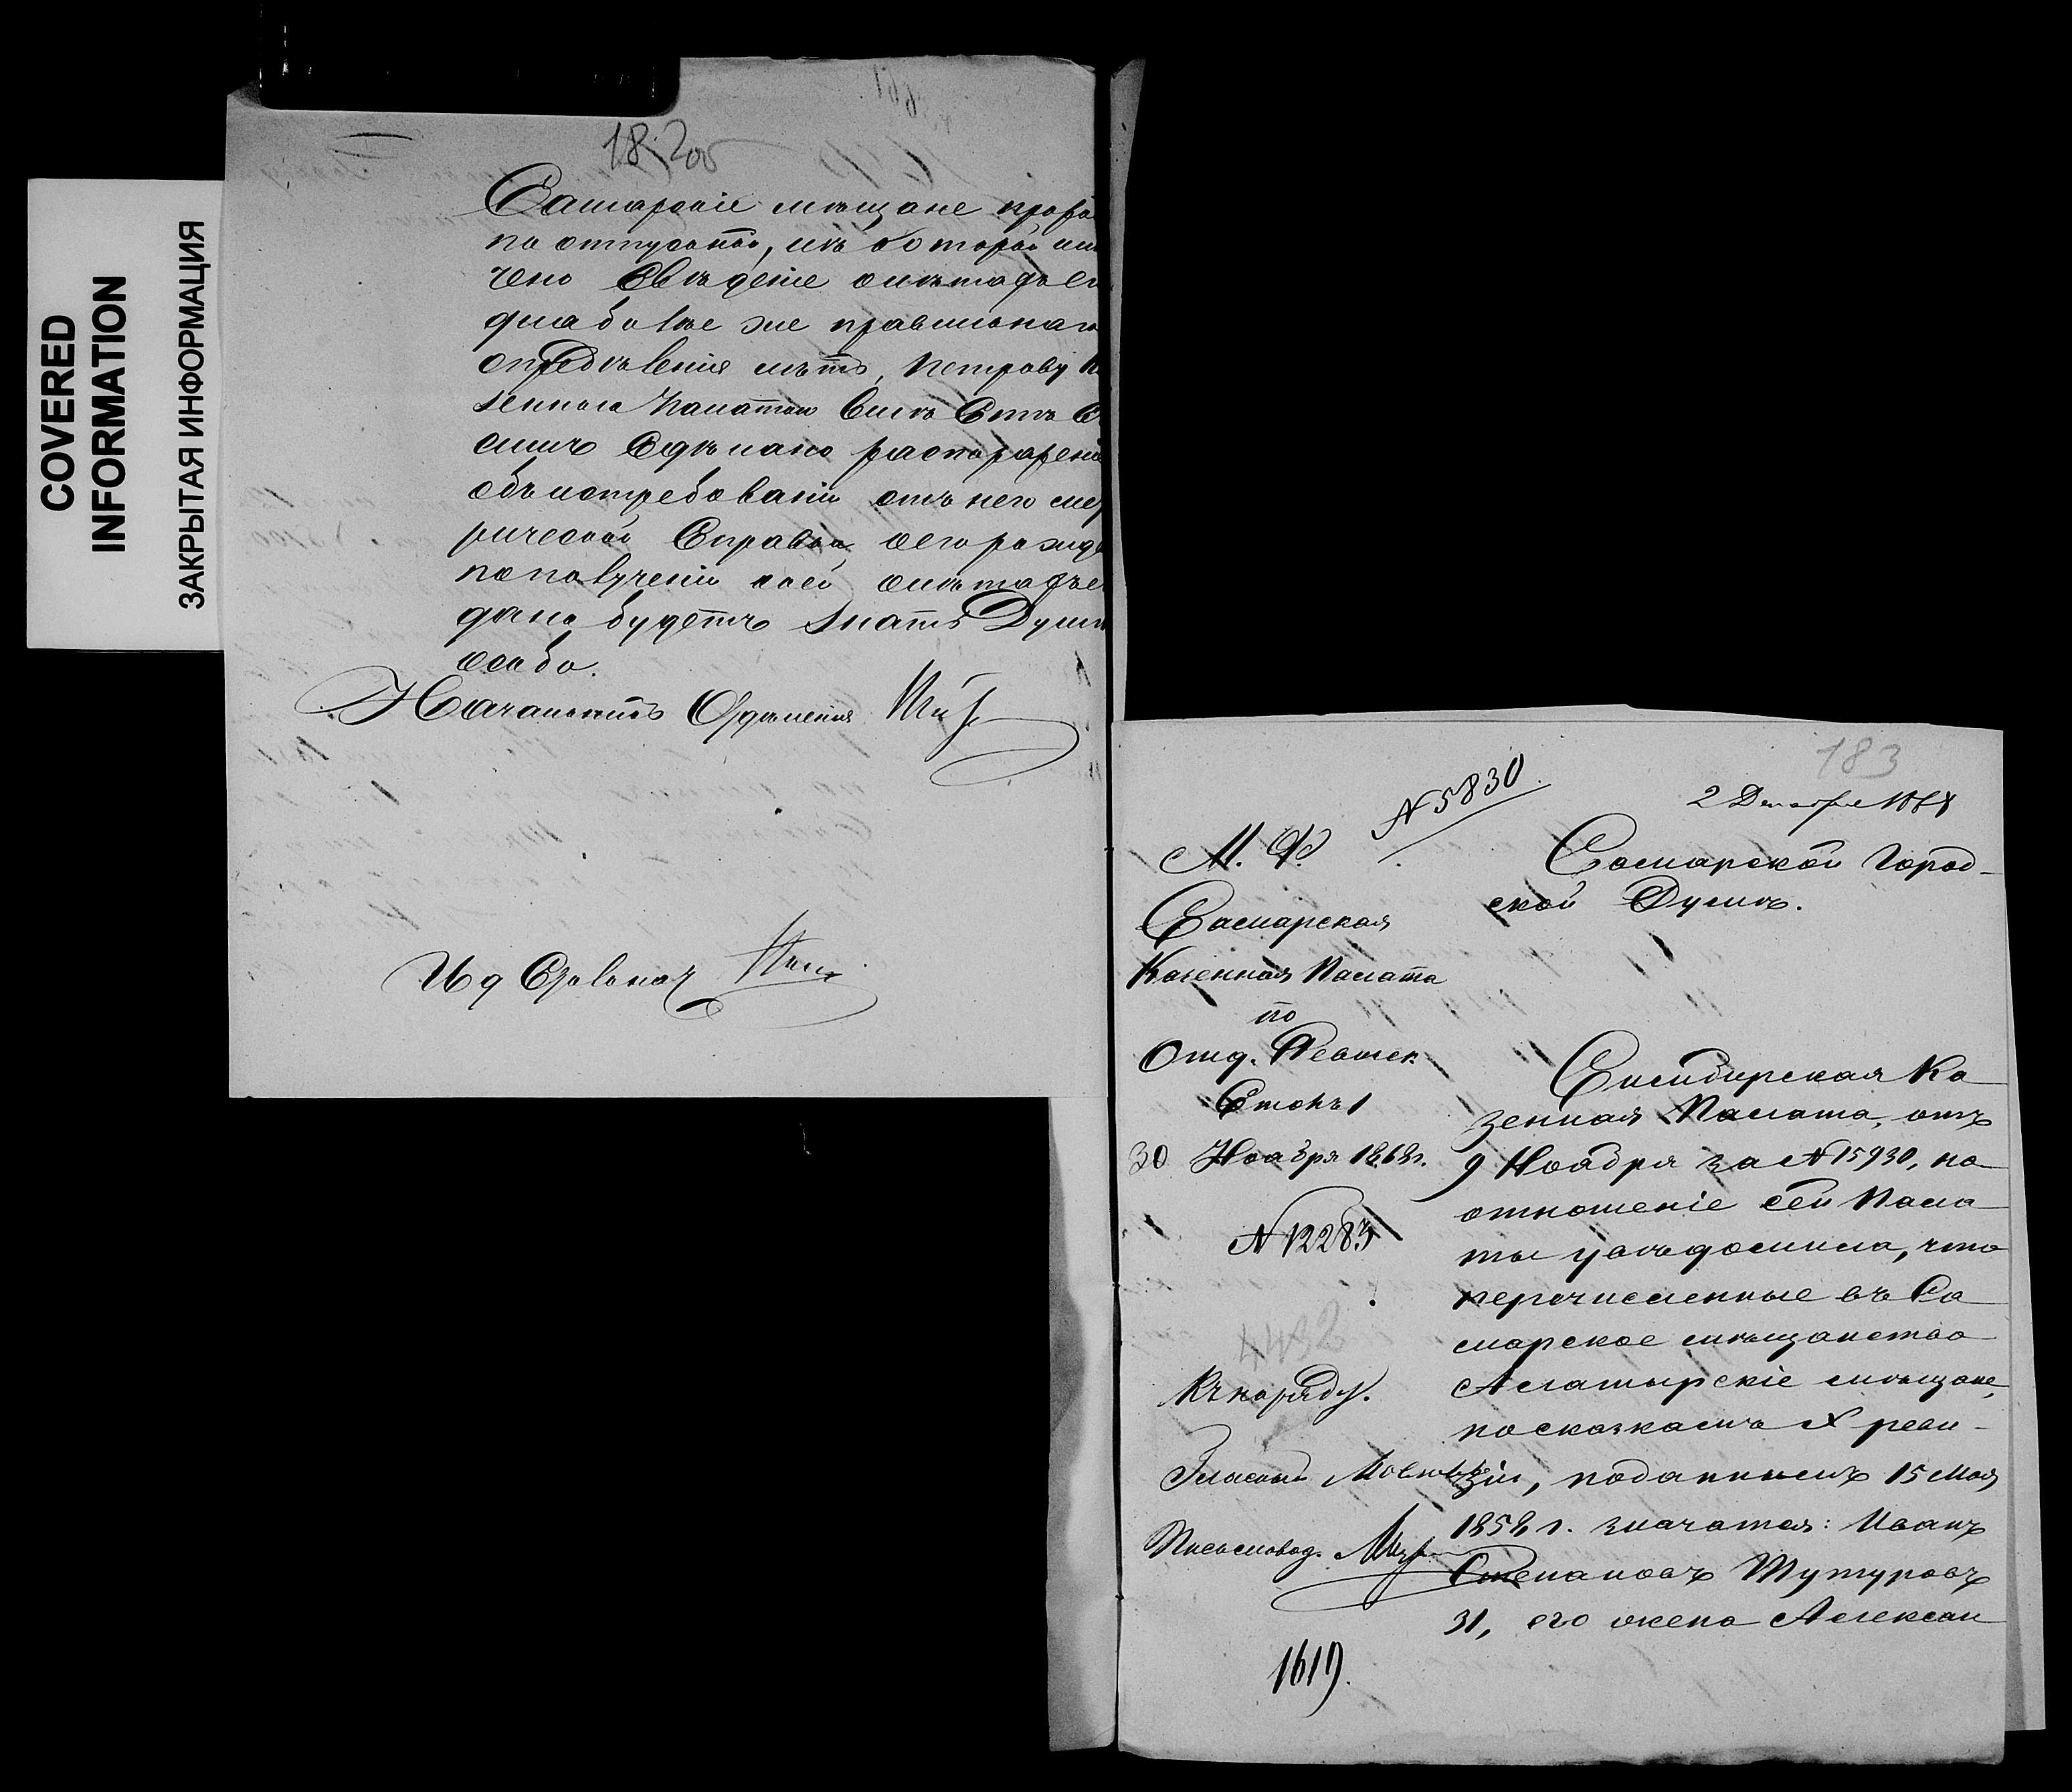 COVERED
INFORMATION
ЗАКРЫТАЯ ИНФОРМАЦИЯ
182об
Самарскiе мѣщане
по отпускной, въ которой
чено Свѣденiе о лѣтахъ ег
для болѣе же правильнаг
опредѣленiя лѣтъ, Петрову
зенною Палатою вмѣстѣ съ
симъ Сдѣлано распоряженi
объ истребованiи отъ него ме
рической Справки о его рожде
по полученiи коей о лѣтахъ ег
дано будетъ знать Думѣ
особо.
Начальникъ Отдѣленiя
И д Столонач
183
№ 5830
2 Декабря 1868
М. Ф.
Самарская
Казенная Палата
по
Отд. Ревизск.
Столъ 1
30 Ноября 1868 г.
№ 12283
4432
Къ наряду.
Гласный
Письмовод.
1619.
Самарской Город-
ской Думѣ.
Симбирская Ка-
зенная Палата, отъ
9 Ноября за № 15930, на
отношенiе сей Пала-
ты увѣдомила, что
перечисленные въ Са-
марское мѣщанство
Алатырскiе мѣщане,
по сказкамъ X реви-
зiи, поданнымъ 15 Мая
1858 г. значатся: Иванъ
Степановъ Тутуровъ
31, его жена Алексан-